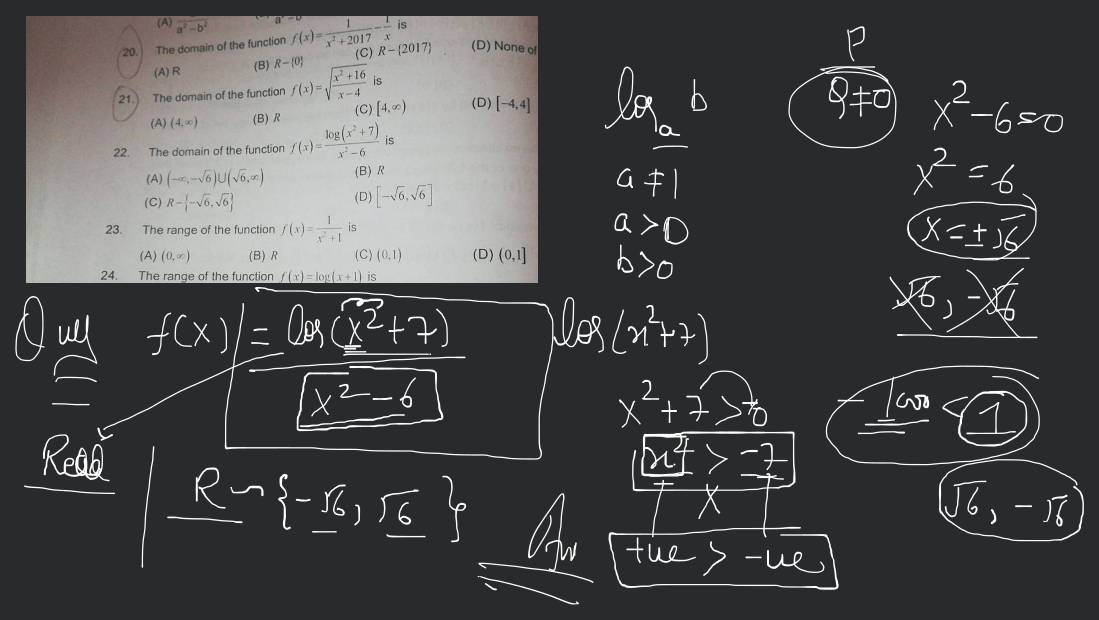 (A) 1/(a²−b²)
20. The domain of the function f(x)= 1/(x²+2017) − 1/x is
(A) R (B) R−{0} (C) R−{2017} (D) None of
21. The domain of the function f(x)= √((x²+16)/(x−4)) is
(A) (4,∞) (B) R (C) [4,∞) (D) [−4,4]
22. The domain of the function f(x)= log(x²+7)/(x²−6) is
(A) (−∞,−√6)∪(√6,∞) (B) R
(C) R−{−√6,√6} (D) [−√6,√6]
23. The range of the function f(x)= 1/(x²+1) is
(A) (0,∞) (B) R (C) (0,1) (D) (0,1]
24. The range of the function f(x)=log(x+1) is
log_a b
a ≠ 1
a > 0
b > 0
P
Q ≠ 0
x² − 6 = 0
x² = 6
x = ± √6
√6, −√6
f(x) = log(x²+7)
x² − 6
Real
R ~ {−√6, √6}
Ans
log(x²+7)
x² + 7 > 0
x² > −7
x
+ve > −ve
− 100 < 1
√6, −√6